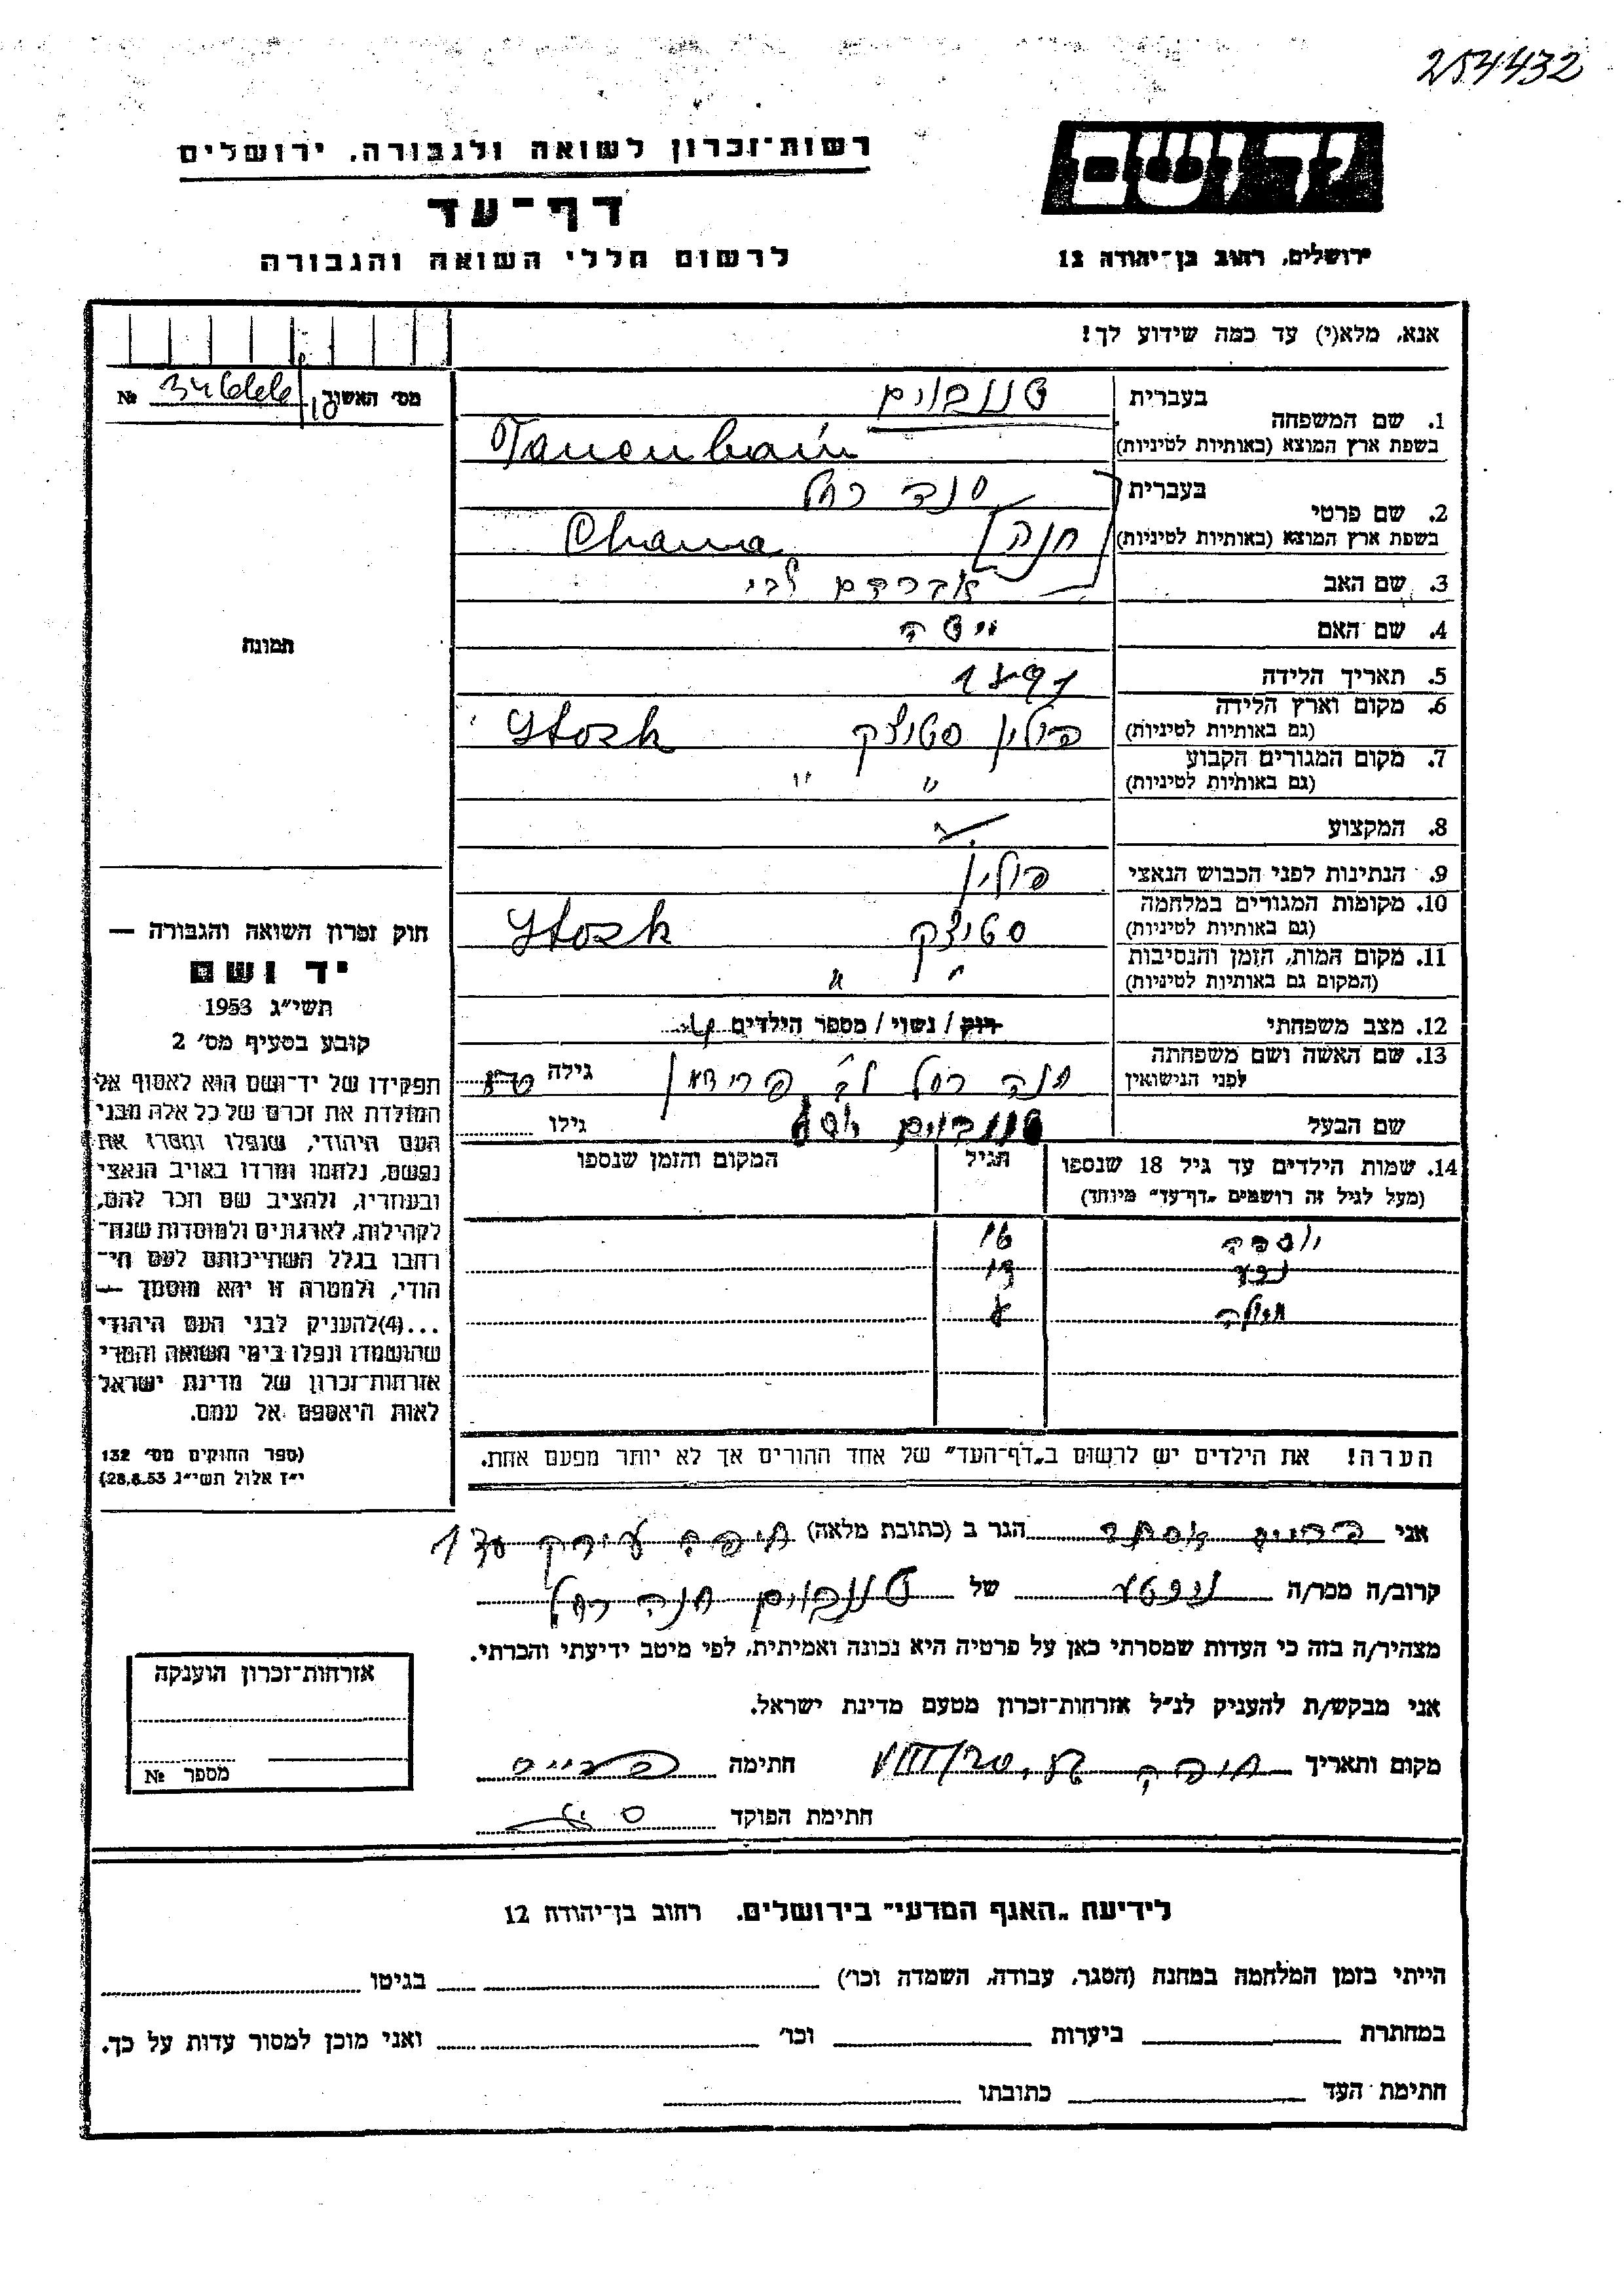 254432
רשות־זכרון לשואה ולגבורה, ירושלים
יד ושם
דף־עד
לרשום חללי השואה והגבורה
ירושלים, רחוב בן־יהודה 12
אנא, מלא(י) עד כמה שידוע לך!
מס׳ האשור №
1. שם המשפחה
בעברית טננבוים
בשפת ארץ המוצא (באותיות לטיניות)
2. שם פרטי
בעברית רחל
בשפת ארץ המוצא (באותיות לטיניות) חנה Chana
3. שם האב אברהם לבי
4. שם האם
5. תאריך הלידה 1897
6. מקום וארץ הלידה פולין סטוצק Stozk
(גם באותיות לטיניות)
7. מקום המגורים הקבוע " "
(גם באותיות לטיניות)
8. המקצוע
9. הנתינות לפני הכבוש הנאצי פולין
10. מקומות המגורים במלחמה סטוצק Stozk
(גם באותיות לטיניות)
11. מקום המות, הזמן והנסיבות " "
(המקום גם באותיות לטיניות)
12. מצב משפחתי רוק / נשוי / מספר הילדים
13. שם האשה ושם משפחתה חנה רחל לב׳ פרידמן גילה
לפני הנישואין
שם הבעל טננבוים יוסף גילו
14. שמות הילדים עד גיל 18 שנספו
(מעל לגיל זה רושמים „דף־עד״ מיוחד)
הגיל
המקום והזמן שנספו
16
13
הערה! את הילדים יש לרשום ב„דף־העד״ של אחד ההורים אך לא יותר מפעם אחת.
תמונה
חוק זכרון השואה והגבורה —
יד ושם
תשי״ג 1953
קובע בסעיף מס׳ 2
תפקידו של יד־ושם הוא לאסוף אל
המולדת את זכרם של כל אלה מבני
העם היהודי, שנפלו ומסרו את
נפשם, נלחמו ומרדו באויב הנאצי
ובעוזריו, ולהציב שם וזכר להם,
לקהילות, לארגונים ולמוסדות שנח־
רבו בגלל השתייכותם לעם הי־
הודי, ולמטרה זו יהא מוסמך —
...(4)להעניק לבני העם היהודי
שהושמדו ונפלו בימי השואה והמרי
אזרחות־זכרון של מדינת ישראל
לאות היאספם אל עמם.
(ספר החוקים מס׳ 132
י״ז אלול תשי״ג 28.8.53)
אני אסתר הגר ב (כתובת מלאה) חיפה
קרוב/ה מכר/ה של טננבוים חנה רחל
מצהיר/ה בזה כי העדות שמסרתי כאן על פרטיה היא נכונה ואמיתית, לפי מיטב ידיעתי והכרתי.
אני מבקש/ת להעניק לנ״ל אזרחות־זכרון מטעם מדינת ישראל.
מקום ותאריך חיפה חתימה
חתימת הפוקד
אזרחות־זכרון הוענקה
מספר №
לידיעת „האגף המדעי״ בירושלים, רחוב בן־יהודה 12
הייתי בזמן המלחמה במחנה (הסגר, עבודה, השמדה וכו׳) בגיטו
במחתרת ביערות וכו׳ ואני מוכן למסור עדות על כך.
חתימת העד כתובתו